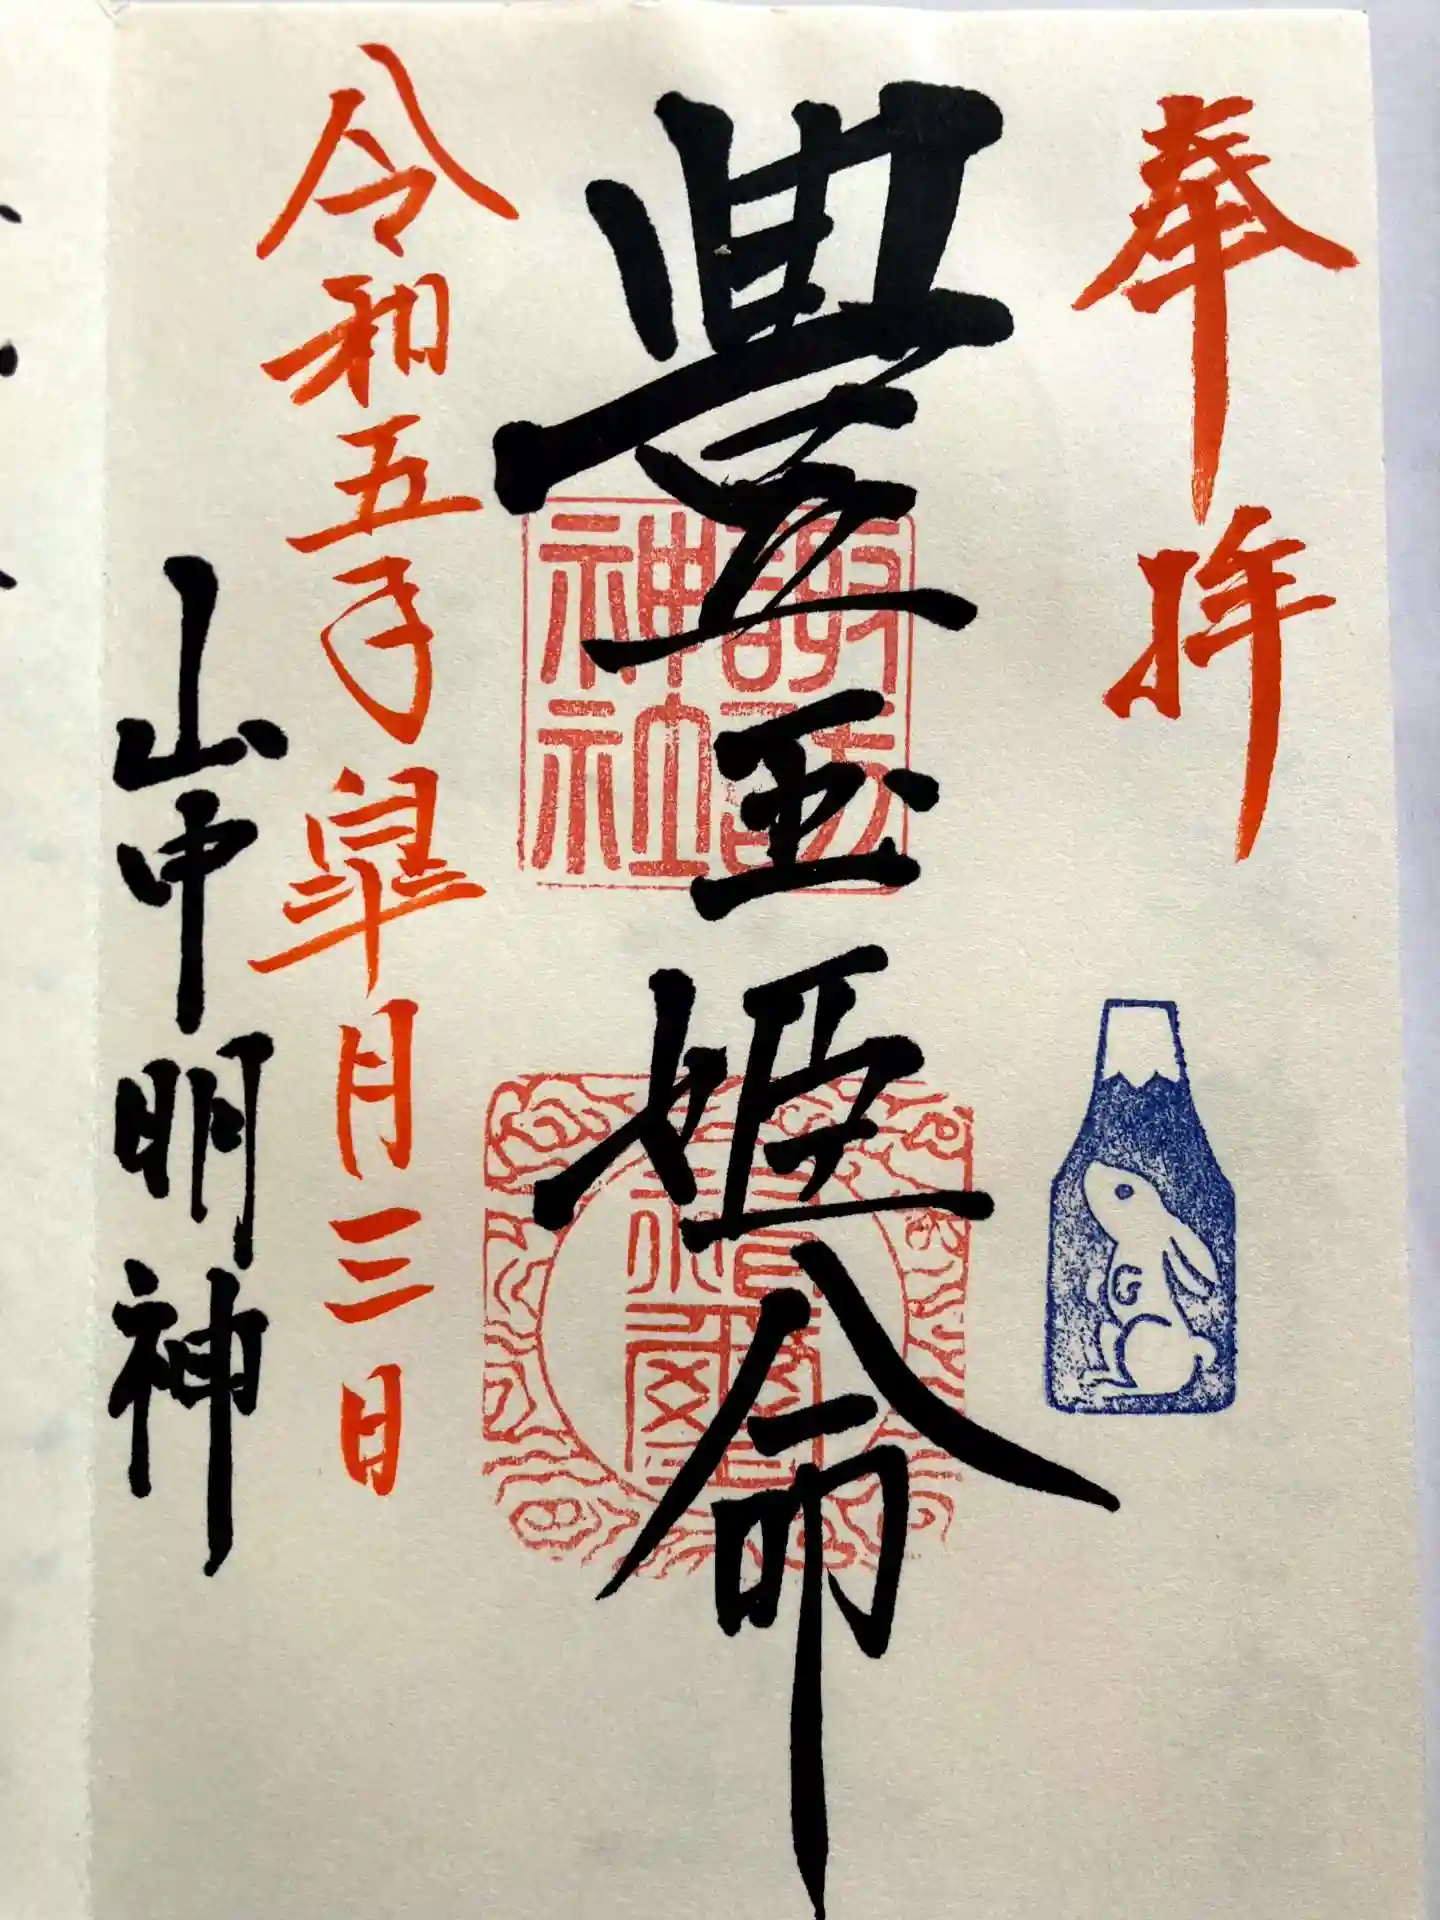 奉拝
豊玉姫命
諏訪神社
令和五年皐月三日
山中明神